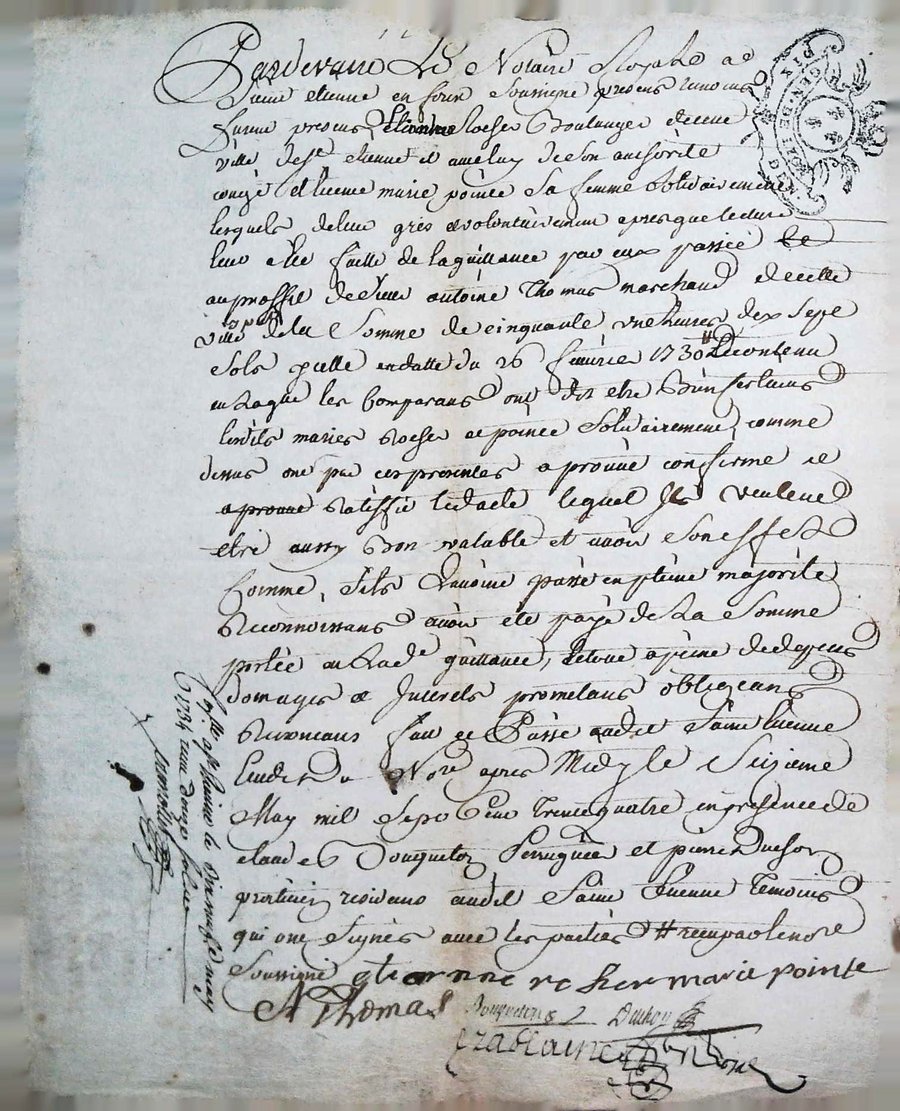 Pardevant Le Notaire Royal de
Saint etienne en forez soussigné presens temoins
furent presens Etienne Rocher Boulanger de cette
ville de St etienne et de luy de son authorité
congé et licence marie pointe sa femme solidairement
lesquels de leur gres et volontairement apres que lecture
leur a ete faitte de la quittance par eux passée
au proffit de sieur antoine Thomas marchand de cette
ville de la somme de cinquante une livres dix sept
sols icelle en datte du 26 1730 Le contenu
en laquelle les comparans ont dit etre
lesdits maries Rocher et pointe solidairement comme
dessus ont par ces presentes aprouvé confirmé et
aprouvé Ratiffié ledit acte lequel Ils veulent
etre aussy Bon valable et avoir son effet
comme sils lavoint passé en pleine majorité
Reconnoissans avoir ete payé de La somme
portée en Lade quittance, a peine de depens
domages et Interets promettans obligeans
Renonceans fait et Passé audit Saint Etienne
Etude du Nore apres Midy le Seizieme
May mil Sept Cent Trente quatre en presence de
claude Perruquier et pierre
praticien residans audit Saint Etienne Temoins
qui ont signés avec les parties # recu par le nore
soussigné etienne rocher marie pointe
A Thomas
Nore
1734 recu douze sols